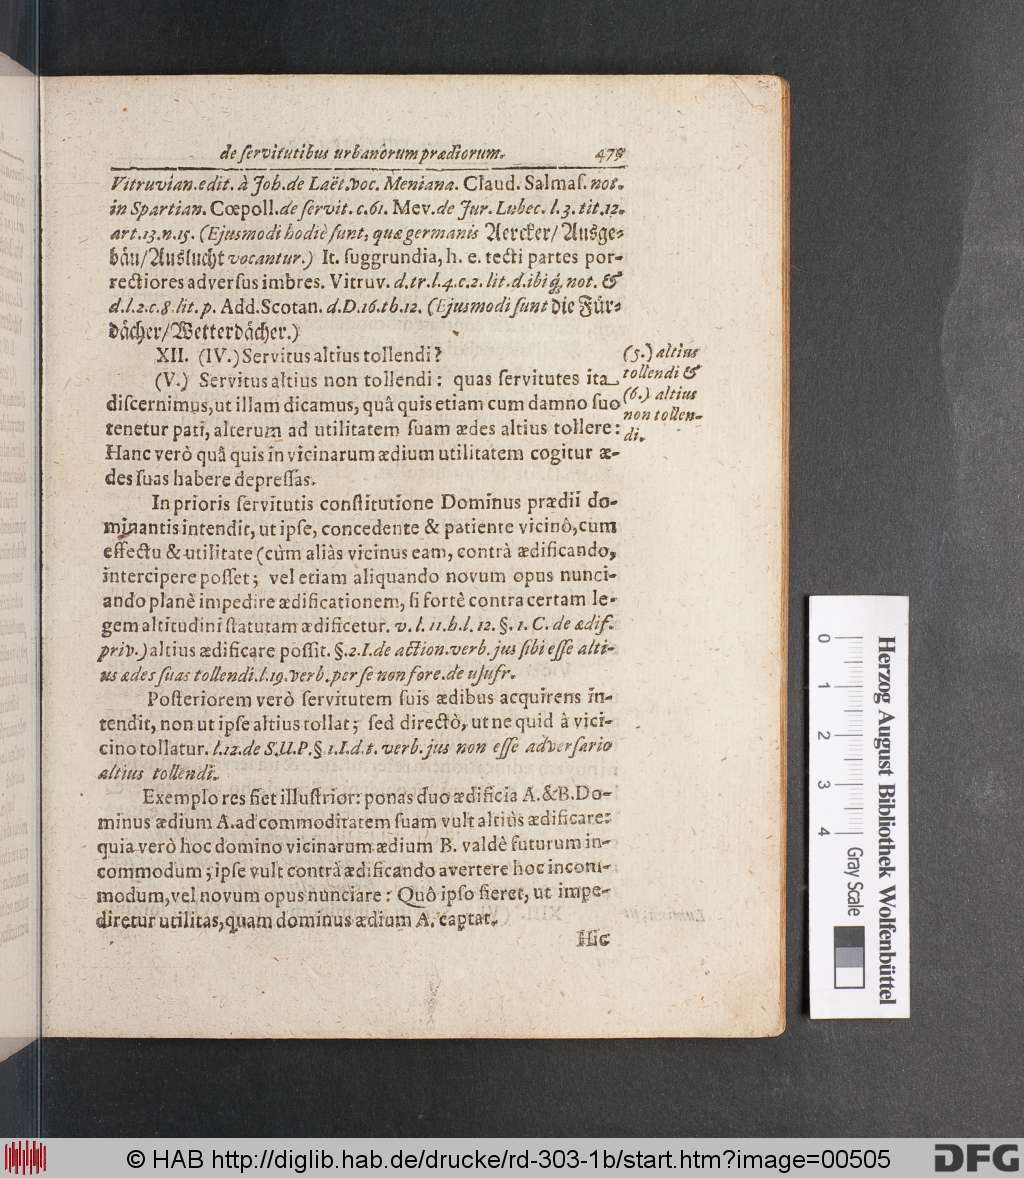 de ſervitutibus urbanorum prædiorum. 479
Vitruvian. edit. à Joh. de Laët. voc. Meniana. Claud. Salmaſ. not.
in Spartian. Cœpoll. de ſervit. c. 61. Mev. de Jur. Lubec. l. 3. tit. 12.
art. 13. n. 15. (Ejusmodi hodiè ſunt, quæ germanis Aercker/ Ausge-
bäu/ Auslucht vocantur.) It. ſuggrundia, h. e. tecti partes por-
rectiores adverſus imbres. Vitruv. d. tr. l. 4. c. 2. lit. d. ibiq́; not. &
d. l. 2. c. 8. lit. p. Add. Scotan. d. D. 16. th. 12. (Ejusmodi ſunt die Für-
dächer/ Wetterdächer.)
XII. (IV.) Servitus altius tollendi?
(V.) Servitus altius non tollendi: quas ſervitutes ita
diſcernimus, ut illam dicamus, quâ quis etiam cum damno ſuo
tenetur pati, alterum ad utilitatem ſuam ædes altius tollere:
Hanc verò quâ quis in vicinarum ædium utilitatem cogitur æ-
des ſuas habere depreſſas.
(5.) altius
tollendi &
(6.) altius
non tollen-
di.
In prioris ſervitutis conſtitutione Dominus prædii do-
minantis intendit, ut ipſe, concedente & patiente vicinô, cum
effectu & utilitate (cùm aliàs vicinus eam, contrà ædificando,
intercipere poſſet; vel etiam aliquando novum opus nunci-
ando planè impedire ædificationem, ſi fortè contra certam le-
gem altitudini ſtatutam ædificetur. v. l. 11. h. l. 12. §. 1. C. de ædif.
priv.) altius ædificare poſſit. §. 2. I. de action. verb. jus ſibi eſſe alti-
us ædes ſuas tollendi. l. 19. verb. per ſe non fore. de uſufr.
Poſteriorem verò ſervitutem ſuis ædibus acquirens in-
tendit, non ut ipſe altius tollat; ſed directò, ut ne quid à vici-
cino tollatur. l. 12. de S. U. P. § 1. I. d. t. verb. jus non eſſe adverſario
altius tollendi.
Exemplo res fiet illuſtrior: ponas duo ædificia A. & B. Do-
minus ædium A. ad commoditatem ſuam vult altiùs ædificare:
quia verò hoc domino vicinarum ædium B. valdè futurum in-
commodum; ipſe vult contrà ædificando avertere hoc incom-
modum, vel novum opus nunciare: Quô ipſo fieret, ut impe-
diretur utilitas, quam dominus ædium A. captat.
Hic
0 1 2 3 4
Gray Scale
Herzog August Bibliothek Wolfenbüttel
© HAB http://diglib.hab.de/drucke/rd-303-1b/start.htm?image=00505
DFG